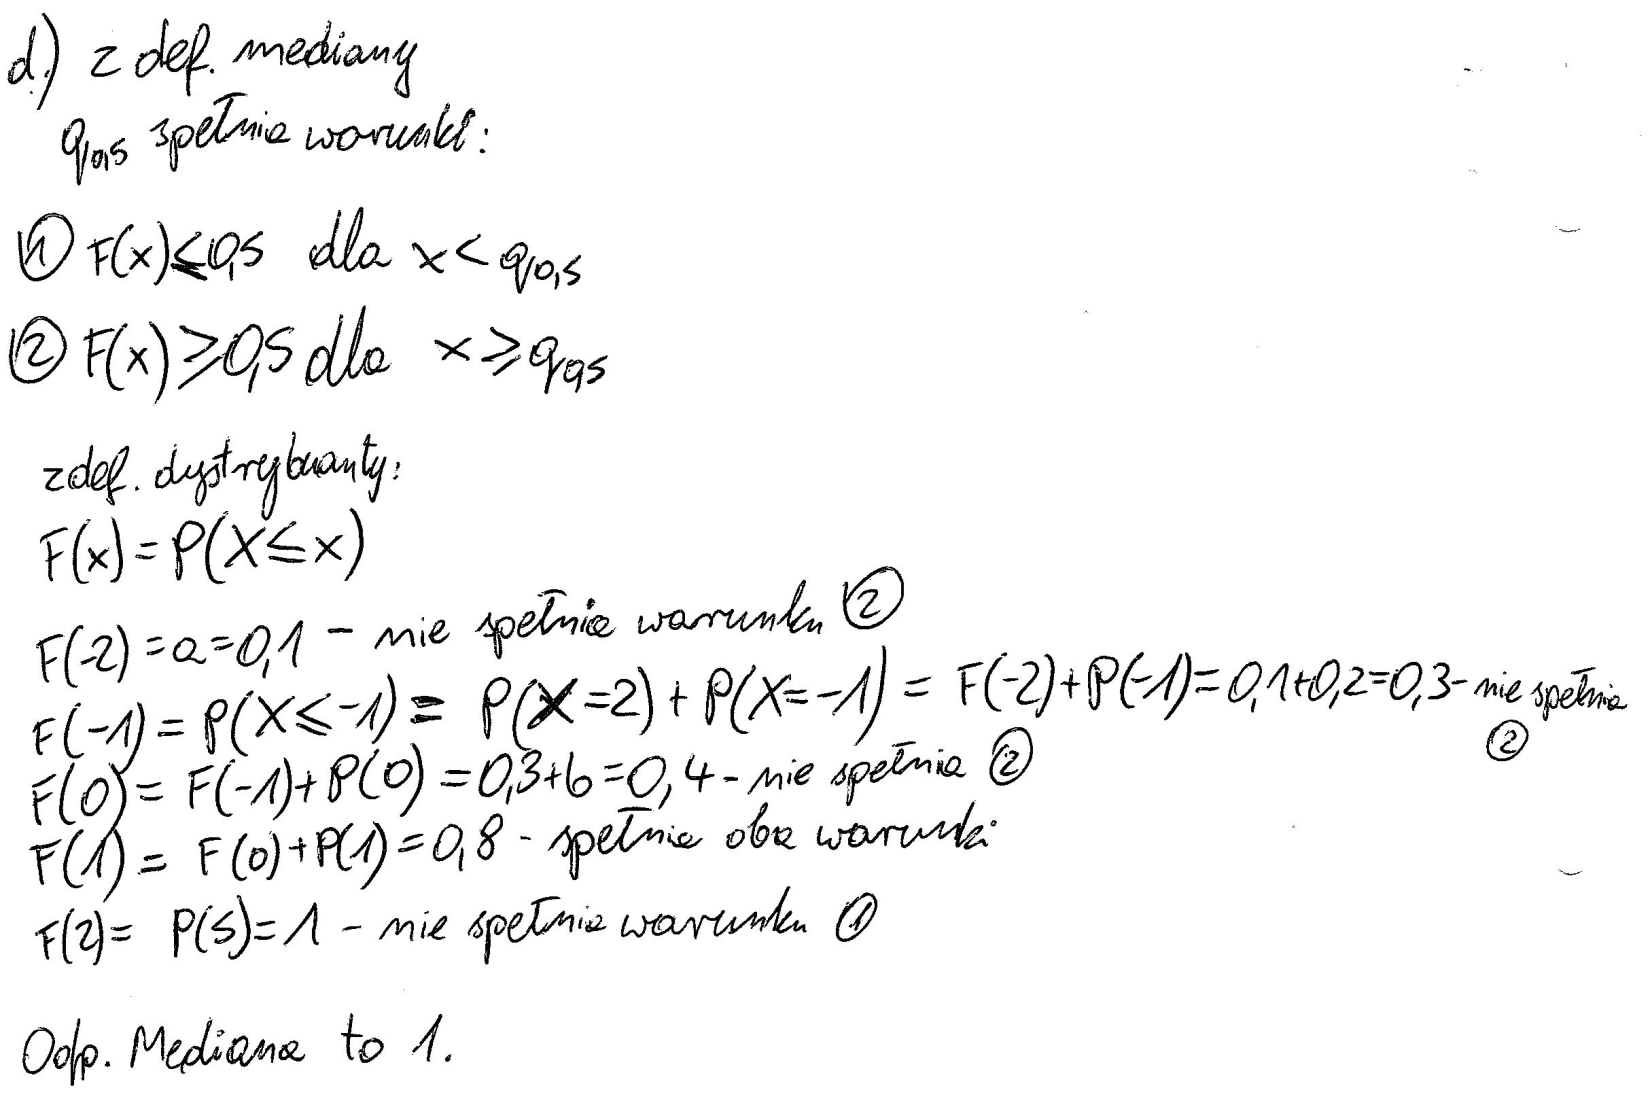 d.) z def. mediany
q0,5 spełnia warunki:
① F(x)≤0,5 dla x < q0,5
② F(x) ≥0,5 dla x ≥ q0,5
z def. dystrybuanty:
F(x) = P(X≤x)
F(-2) = a = 0,1 - nie spełnia warunku ②
F(-1) = P(X≤-1) = P(X=2) + P(X=-1) = F(-2)+P(-1)=0,1+0,2=0,3- nie spełnia ②
F(0) = F(-1)+P(0) = 0,3+b = 0,4 - nie spełnia ②
F(1) = F(0)+P(1) = 0,8 - spełnia oba warunki
F(2) = P(S) = 1 - nie spełnia warunku ①
Odp. Mediana to 1.